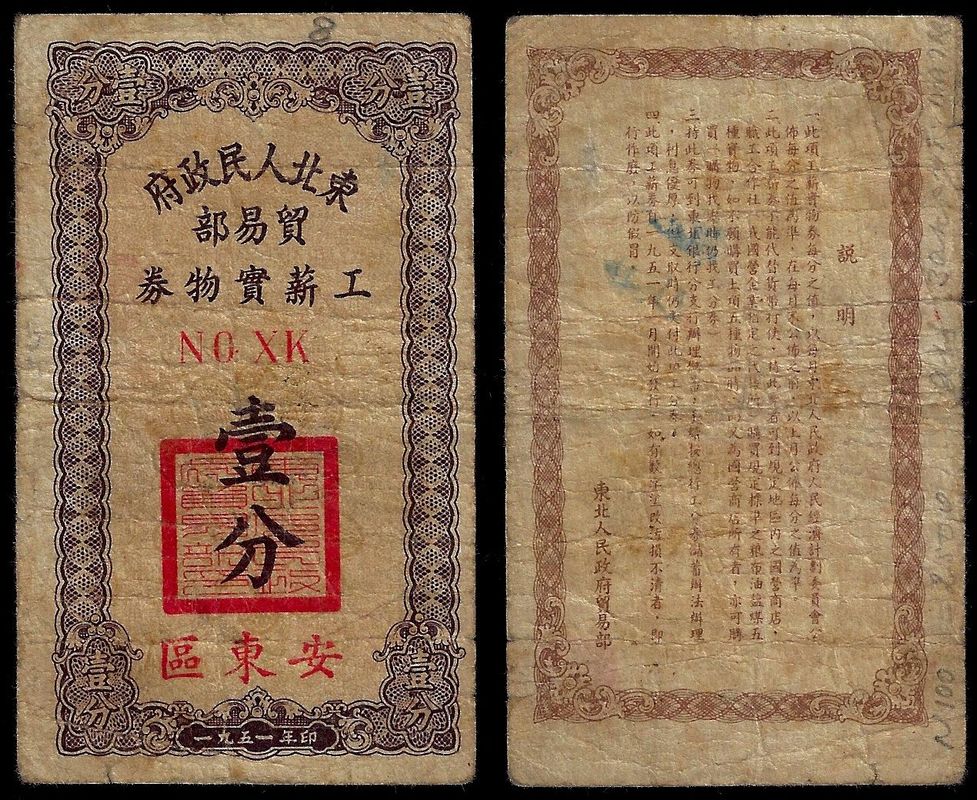 壹分
壹分
東北人民政府
貿易部
工薪實物券
NO XK
壹分
安東區
壹分
壹分
一九五一年印
8
說明
一、此項工薪實物券每分之值，以每月東北人民政府人民經濟計劃委員會公
佈每分之值為準。在每月未公佈之前，以上月公佈每分之值為準
二、此項工薪券不能代替貨幣行使，持此券者可到規定地區內之國營商店，
職工合作社，或國營企業指定之代售所，購買規定標準之糧布油鹽煤五
種實物，如不願購買上項五種物品時，為國營商店所有者，亦可購
買。購物找零時仍找工分券。
三、持此券可到東北銀行分支行辦理儲蓄，手續按總行工分券儲蓄辦法辦理
，利息優厚，但支取時仍付此項工分券。
四、此項工薪券自一九五一年一月開始發行。如有塗改污損不清者，即
行作廢，以防假冒。
東北人民政府貿易部